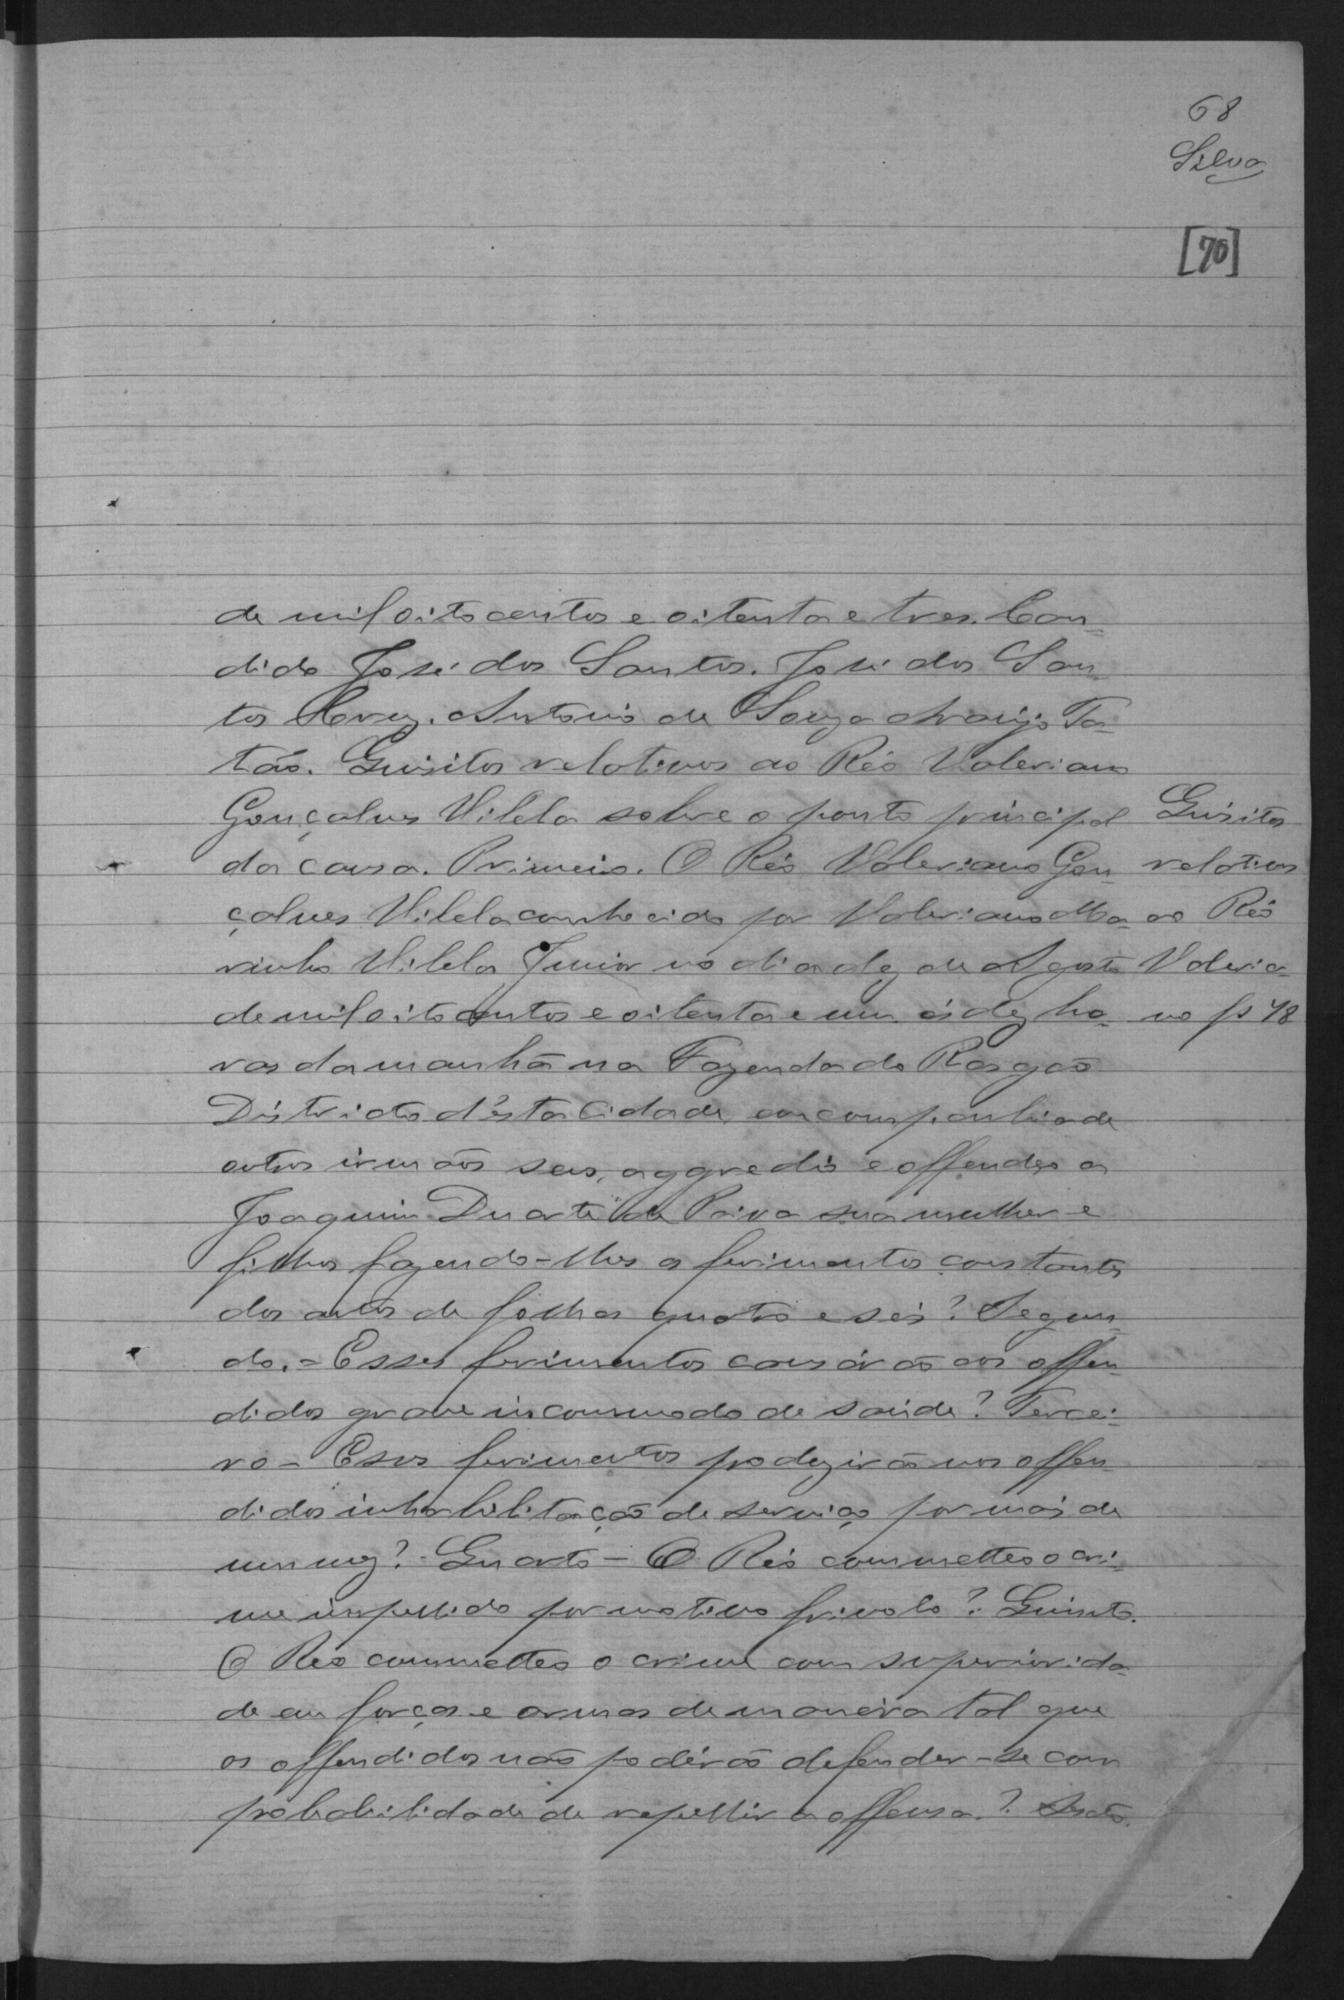 68
Silva
[70]
de mil oito centos e oitenta e tres. Can-
dido José dos Santos. José dos San-
tos. Antonio de Souza Araujo Ta-
tão. Quisitos relativos ao Réo Valeriano
Gonçalves Vilela sobre o ponto principal
da causa. Primeiro. O Réo Valeriano Gon-
çalves Vilela conhecido por Valeriano Ma-
rinho Vilela Junior no dia dez de Agosto
de mil oito centos e oitenta e um ás dez ho-
ras da manhã na Fazenda do Rasgão
Districto d'esta Cidade, em companhia de
outros irmãos seus, aggredio e offendeo a
Joaquim Duarte de Paiva sua mulher e
filhos fazendo-lhes os ferimentos constantes
dos autos de folhas quatro e seis? Segun-
do. = Esses ferimentos causárão aos offen-
didos grave incommodo de saúde? Tercei-
ro - Esses ferimentos produzirão nos offen-
didos inhabilitação de serviço por mais de
um mez? - Quarto - O Réo commetteo o cri-
me impellido por motivo frivolo? Quinto.
O Réo commetteo o crime com superiorida-
de em forças e armas de maneira tal que
os offendidos não podérão defender-se com
probabilidade de repellir a offensa? Sexto.
Quisitos
relativos
ao Réo
Valeria-
no fs 48